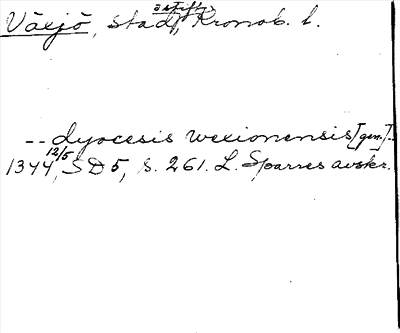 Växjö, stad, o. stift, Kronob. l.
-- dyocesis wexionensis [gen.] --
1344 12/5, SD 5, s. 261. L. Sparres avskr.